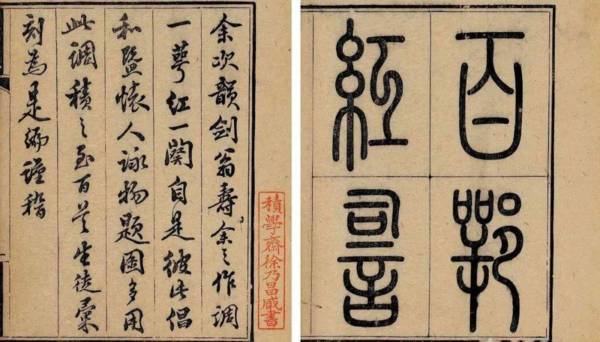 百萼
紅詞
余次韻劍翁壽余之作調
一萼紅一闋自是彼此倡
和暨懷人詠物題圖多用
此調積之至百首生徒彙
刻為是編謹稽
積學齋徐乃昌藏書